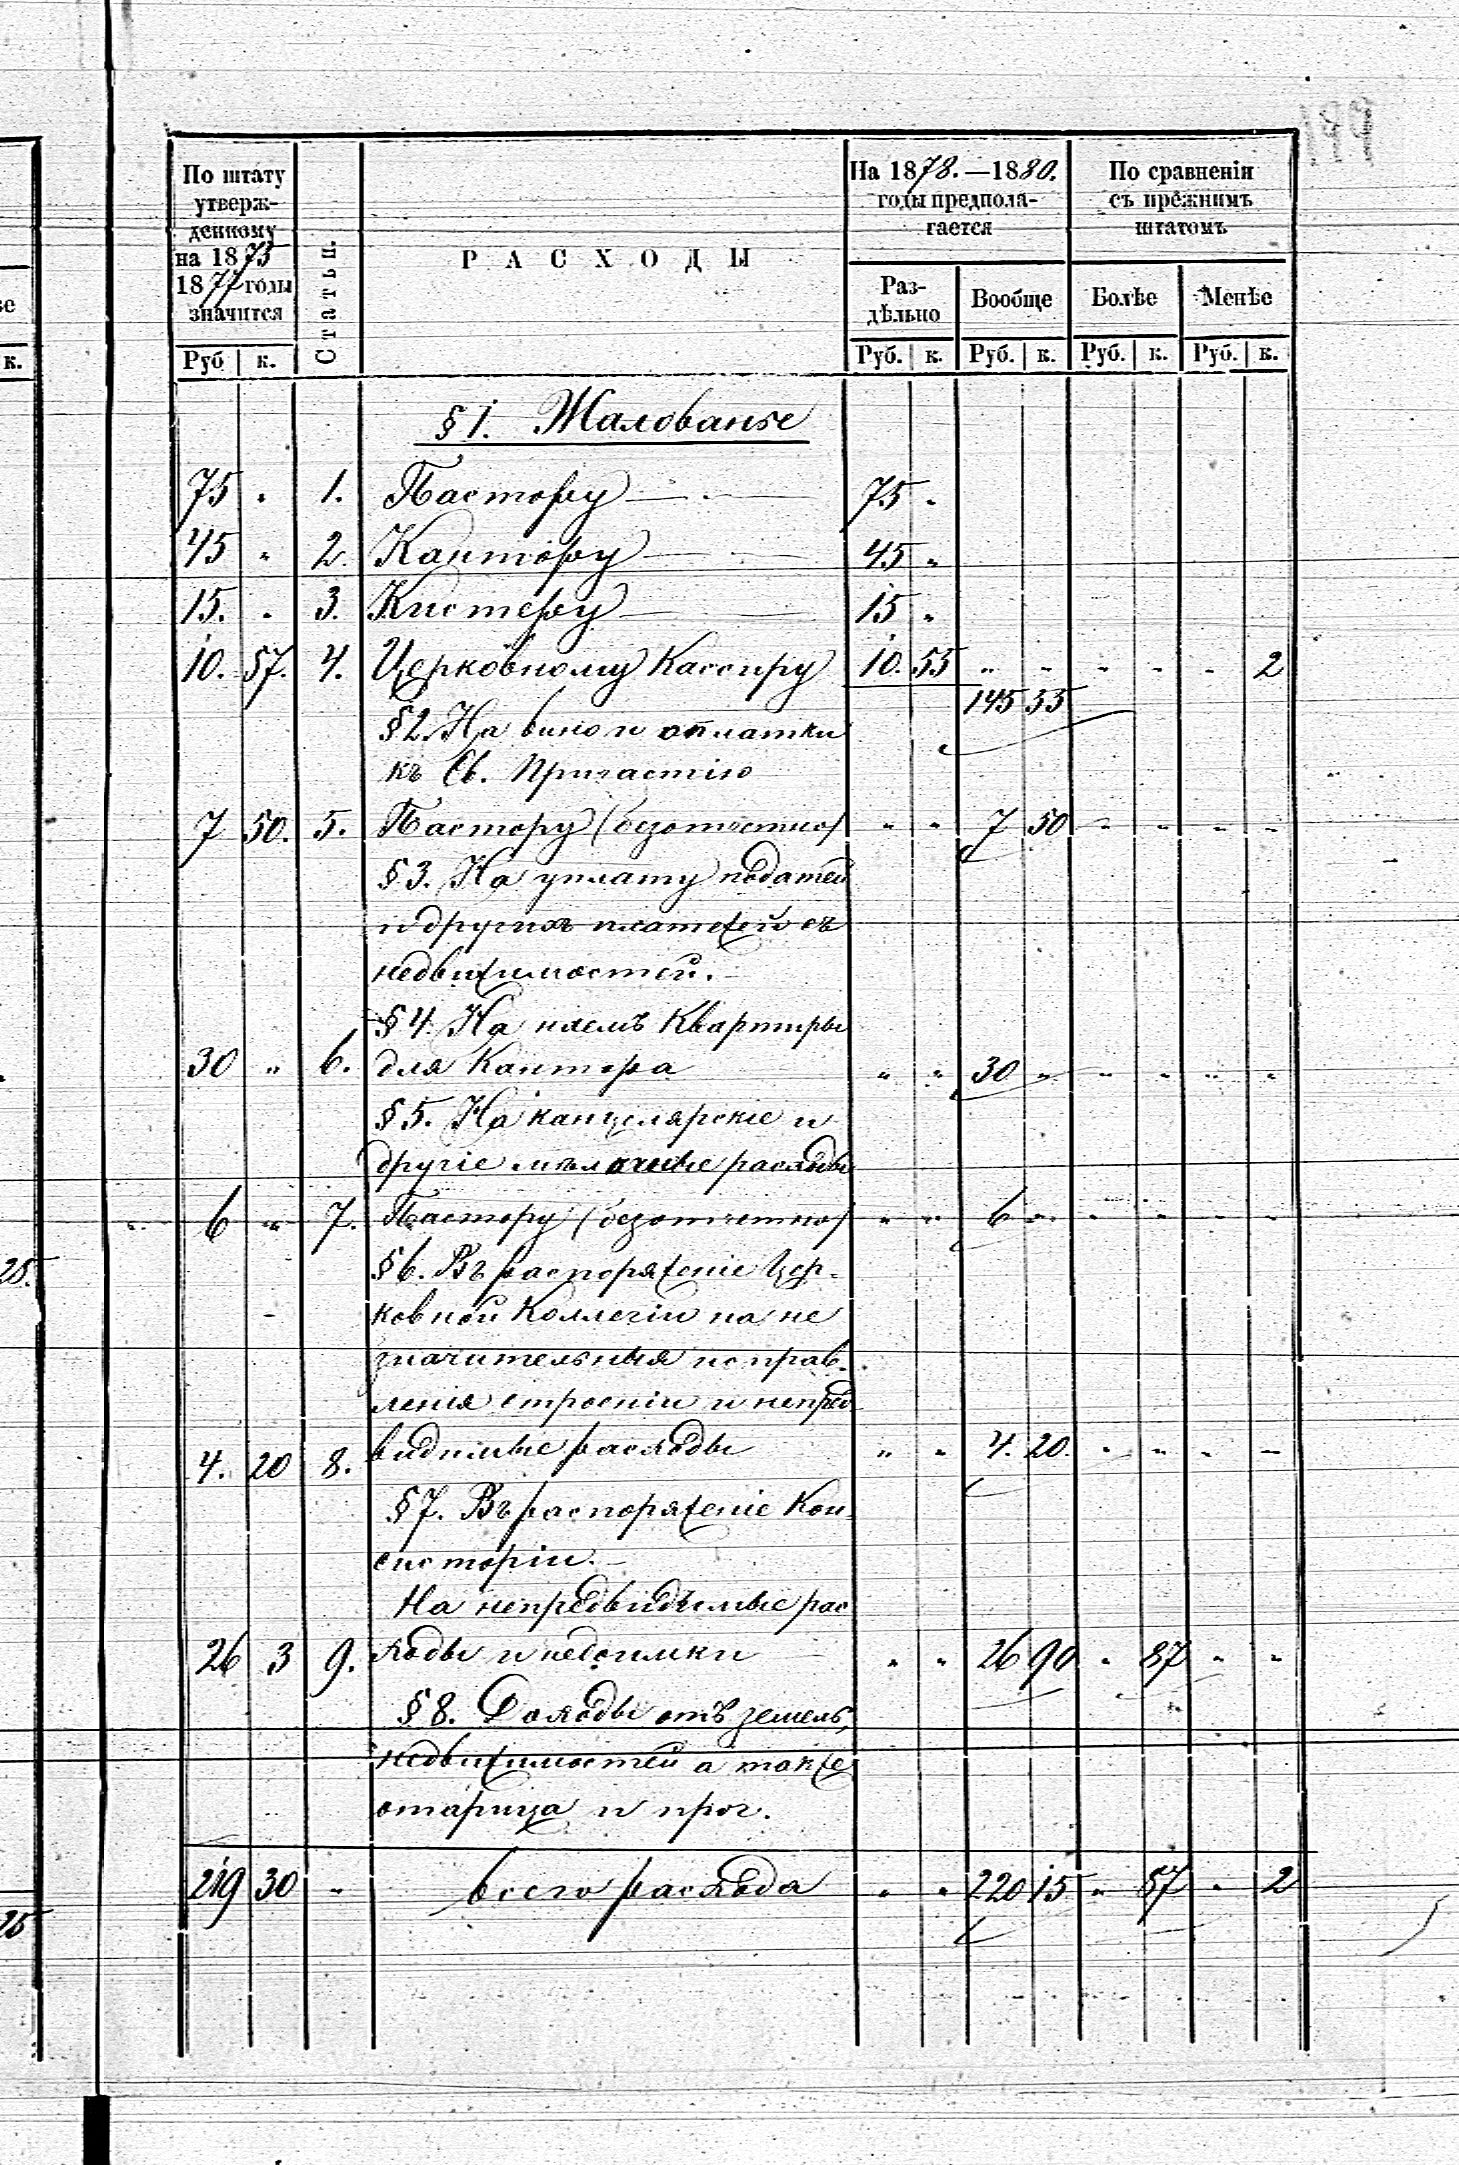 По штату
утверж-
денному
на 1875
1877 годы
значится
Статьи.
РАСХОДЫ
На 1878.—1880.
годы предпола-
гается
По сравненiи
съ прежнимъ
штатомъ
Раз-
дѣльно
Вообще
Болѣе
Менѣе
Руб к.
Руб. к. Руб. к. Руб. к. Руб. к.
§ 1. Жалованье
75 " 1. Пастору 75 "
45 " 2. Кантору 45 "
15. " 3. Кистеру 15 "
10. 57. 4. Церковному Кассиру 10. 55 " " " " " 2
145 55
§ 2. На вино и оплатки
къ Св. Причастiю
7 50. 5. Пастору (безотчетно) " " 7 50 " " " "
§ 3. На уплату податей
и другихъ платежей съ
недвижимостей.
§ 4. На наемъ квартиры
30 " 6. для Кантора " " 30 " " " " "
§ 5. На канцелярскiе и
другiе мѣлочные расходы
6 " 7. Пастору (безотчетно) " " 6 " " " " "
§ 6. Въ распоряженiе Цер-
ковной Коллегiи на не
значительныя исправ-
ленiя строенiи и непред
4. 20 8. видимые расходы " " 4. 20. " " " "
§ 7. Въ распоряженiе Кон-
систорiи.
На непредвидѣмые рас
26 3 9. ходы и недоимки " " 26 90 " 87 " "
§ 8. Доходы отъ земель,
недвижимостей а также
старица и проч.
219 30 " Всего расхода " " 220 15 " 87 " 2
к.
25.
25